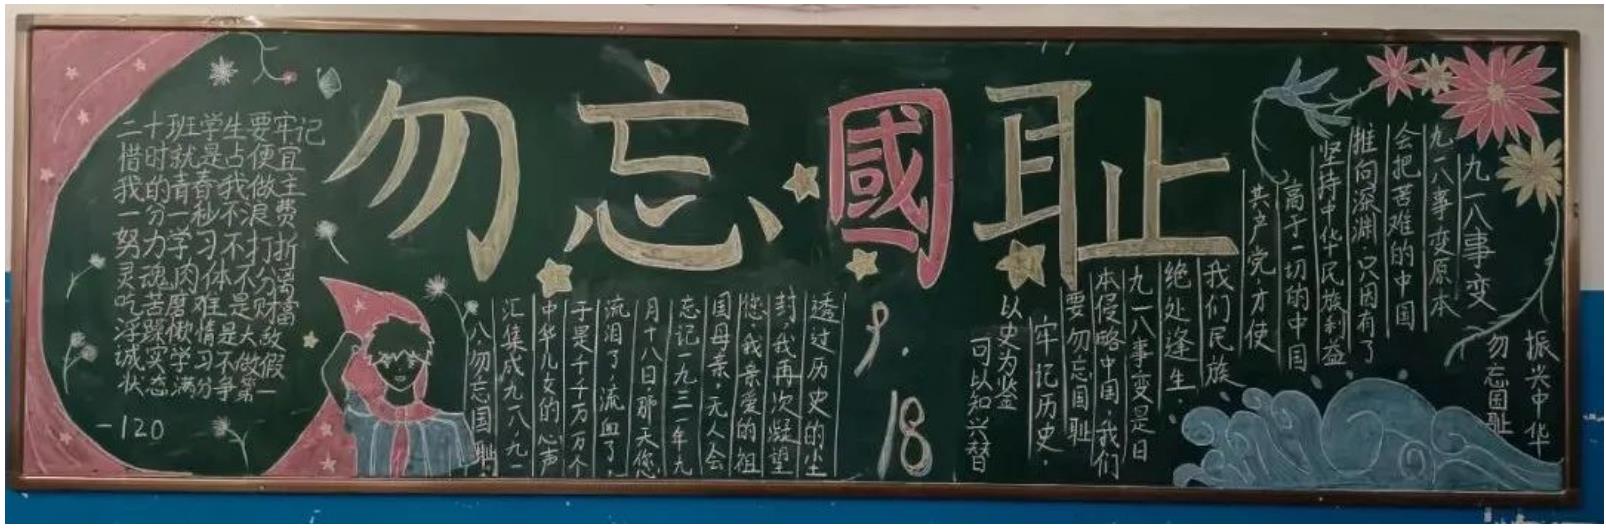 勿忘國耻
二十班学生要牢记
惜时就是占便宜
我的青春我做主
一分一秒不浪费
努力学习不打折
灵魂肉体不分离
吃苦磨难是财富
浮躁懒惰是大敌
诚实学习不做假
状态满分争第一
-120
9.18
透过历史的尘
封,我再次凝望
您,我亲爱的祖
国母亲,无人会
忘记一九三一年九
月十八日那天,您
流泪了,流血了,
于是千千万万个
中华儿女的心声
汇集成九一八,九一
八,勿忘国耻.
九一八事变
九一八事变原本
会把苦难的中国
推向深渊,只因有了
坚持中华民族利益
高于一切的中国
共产党,才使
我们民族
绝处逢生.
九一八事变是日
本侵略中国,我们
要勿忘国耻
牢记历史.
以史为鉴
可以知兴替
振兴中华
勿忘国耻